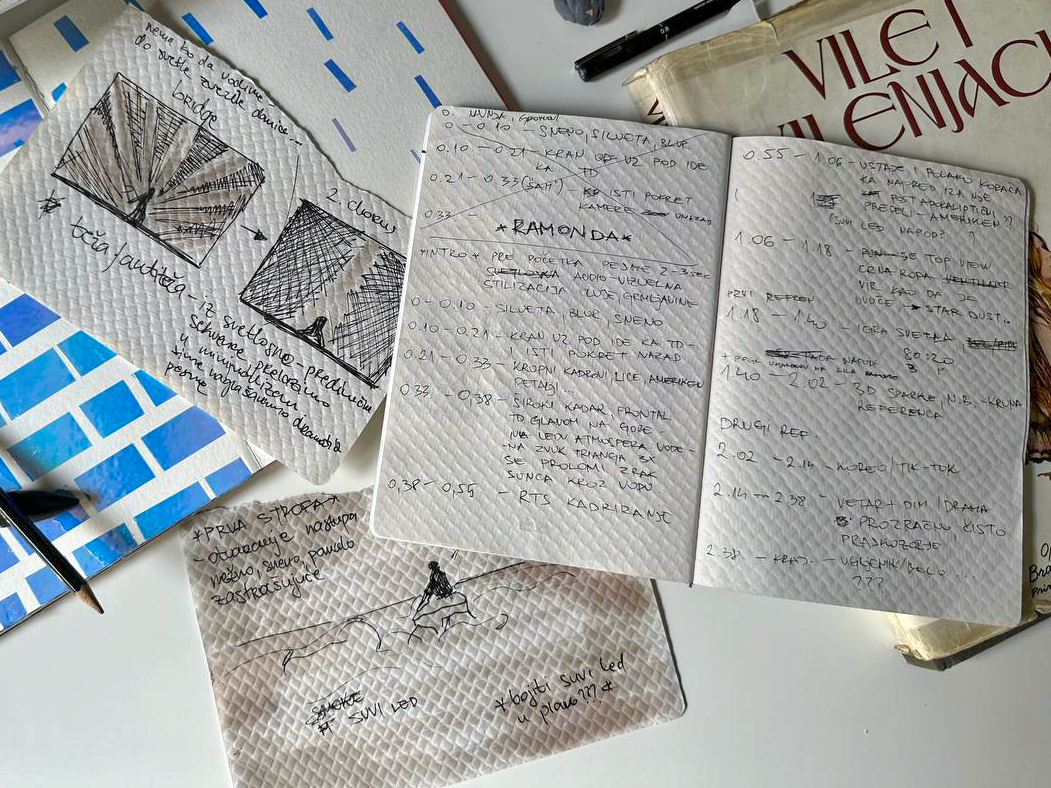 nema ko da vodi me
do svetle zvezde danice...
bridge
teža/antiteža - iz
svetlosno-prediničnom
u minimalizam,
pesme
2. chorus
0 - 0.10 - SNENO, SILUETA, BLUR
0.10 - 0.21 - KRAN UZ POD IDE
KA TD
0.21 - 0.33 ("SAM") - ISTI POKRET
KAMERE UNAZAD
0.33 -
*RAMONDA*
*INTRO* PRE POČETKA PESME 2-3 SEC
AUDIO-VIZUELNA
STILIZACIJA OLUJE, GRMLJAVINE
0 - 0.10 - SILUETA, BLUR, SNENO
0.10 - 0.21 - KRAN UZ POD IDE KA TD -
I ISTI POKRET NAZAD
0.21 - 0.33 - KRUPNI KADROVI, LICE, AMERIKEN
DETALJI...
0.33 - 0,38 - ŠIROKI KADAR, FRONTAL
TD GLAVOM NA GORE -
NA LEDU ATMOSFERA VODE -
- NA ZVUK TRIANGLA 3X
SE PROLOMI ZRAK
SUNCA KROZ VODU.
0,38 - 0,55 - RTS KADRIRANJE
0.55 - 1.06 - USTAJE I POLAKO KORAČA
KA NAPRED IZA NJE
POSTAPOKALIPTIČNI
PREDELI - AMERIKEN??
(SUVI LED NAPOLJE?
1.06 - 1.18 - SE TOP VIEW
CRNA RUPA
VIR KAO DA JE
STAR DUST..
PRVI REFREN
1.18 - 1.40 - IGRA SVETLA
80:20
1.40 - 2.02 - 3D SPARKLE, N.B - KRUNA
REFERENCA
DRUGI REF.
2.02 - 2.14 - KOREO/TIK-TOK
2.14 - 2.38 - VETAR + DIM / DRAMA
PROZRAČNO ČISTO
PRASKOZORJE
2.38 - KRAJ - /BELO ...
???
VILE I
VILENJACI
*PRVA STROFA*
- otvaranje nastupa
nežno, sneno, pomalo
zastrašujuće
SMOKE
SUVI LED
*bojiti suvi led
u plavo???*